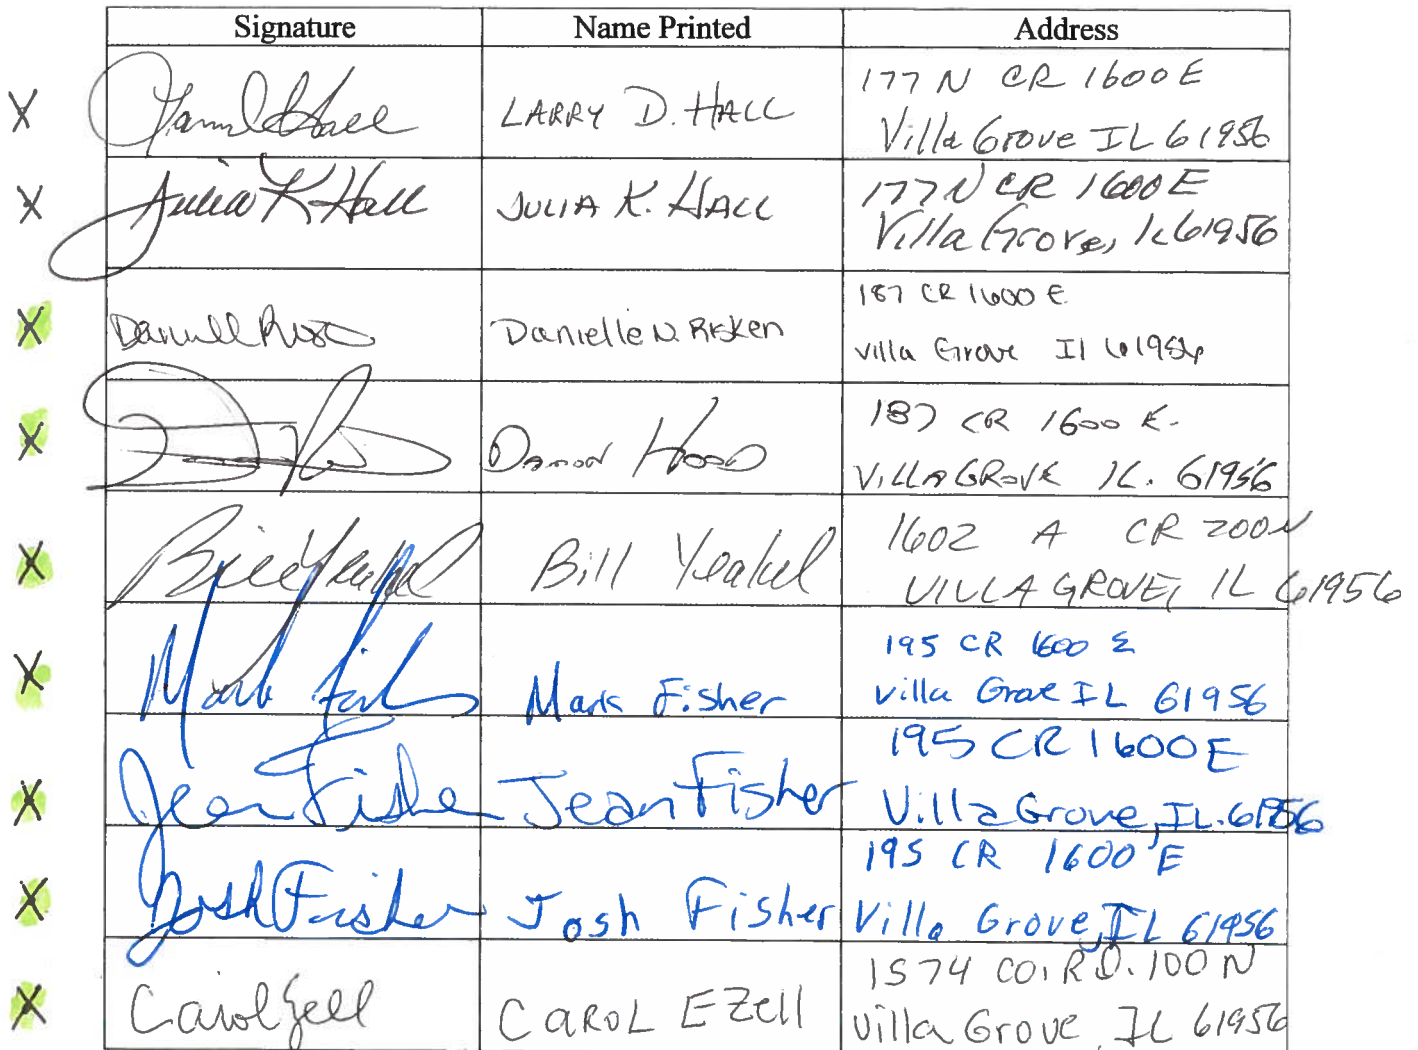 Signature Name Printed Address
X Larry D Hall LARRY D. HALL 177 N CR 1600 E
Villa Grove IL 61956
X Julia K Hall JULIA K. HALL 177 N CR 1600 E
Villa Grove, IL 61956
X Danielle N. Risken 187 CR 1600 E.
Villa Grove Il 61956
X Damon Hood 187 CR 1600 E.
VILLA GROVE IL. 61956
X Bill Yeakel Bill Yeakel 1602 A CR 200N
VILLA GROVE, IL 61956
X Mark Fisher Mark Fisher 195 CR 1600 E
Villa Grove IL 61956
X Jean Fisher Jean Fisher 195 CR 1600 E
Villa Grove, IL. 61956
X Josh Fisher Josh Fisher 195 CR 1600 E
Villa Grove, IL 61956
X Carol Ezell CAROL EZell 1574 CO. RD. 100 N
Villa Grove, IL 61956